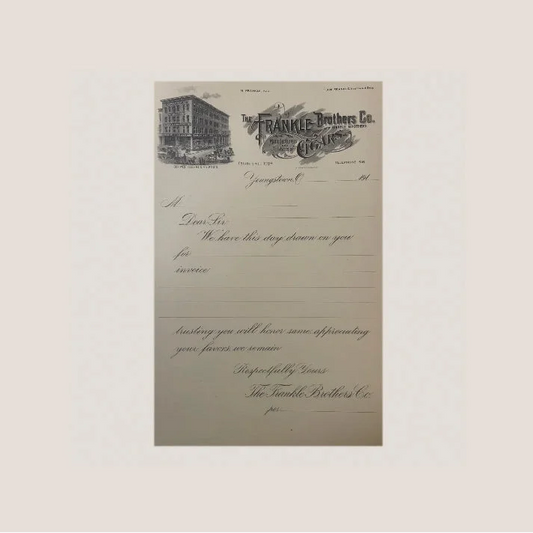 The Frankle Brothers Co.
Cigars
Youngstown, O. 191
M
Dear Sir
We have this day drawn on you
for
invoice
trusting you will honor same, appreciating
your favors, we remain
Respectfully Yours
The Frankle Brothers' Co
per